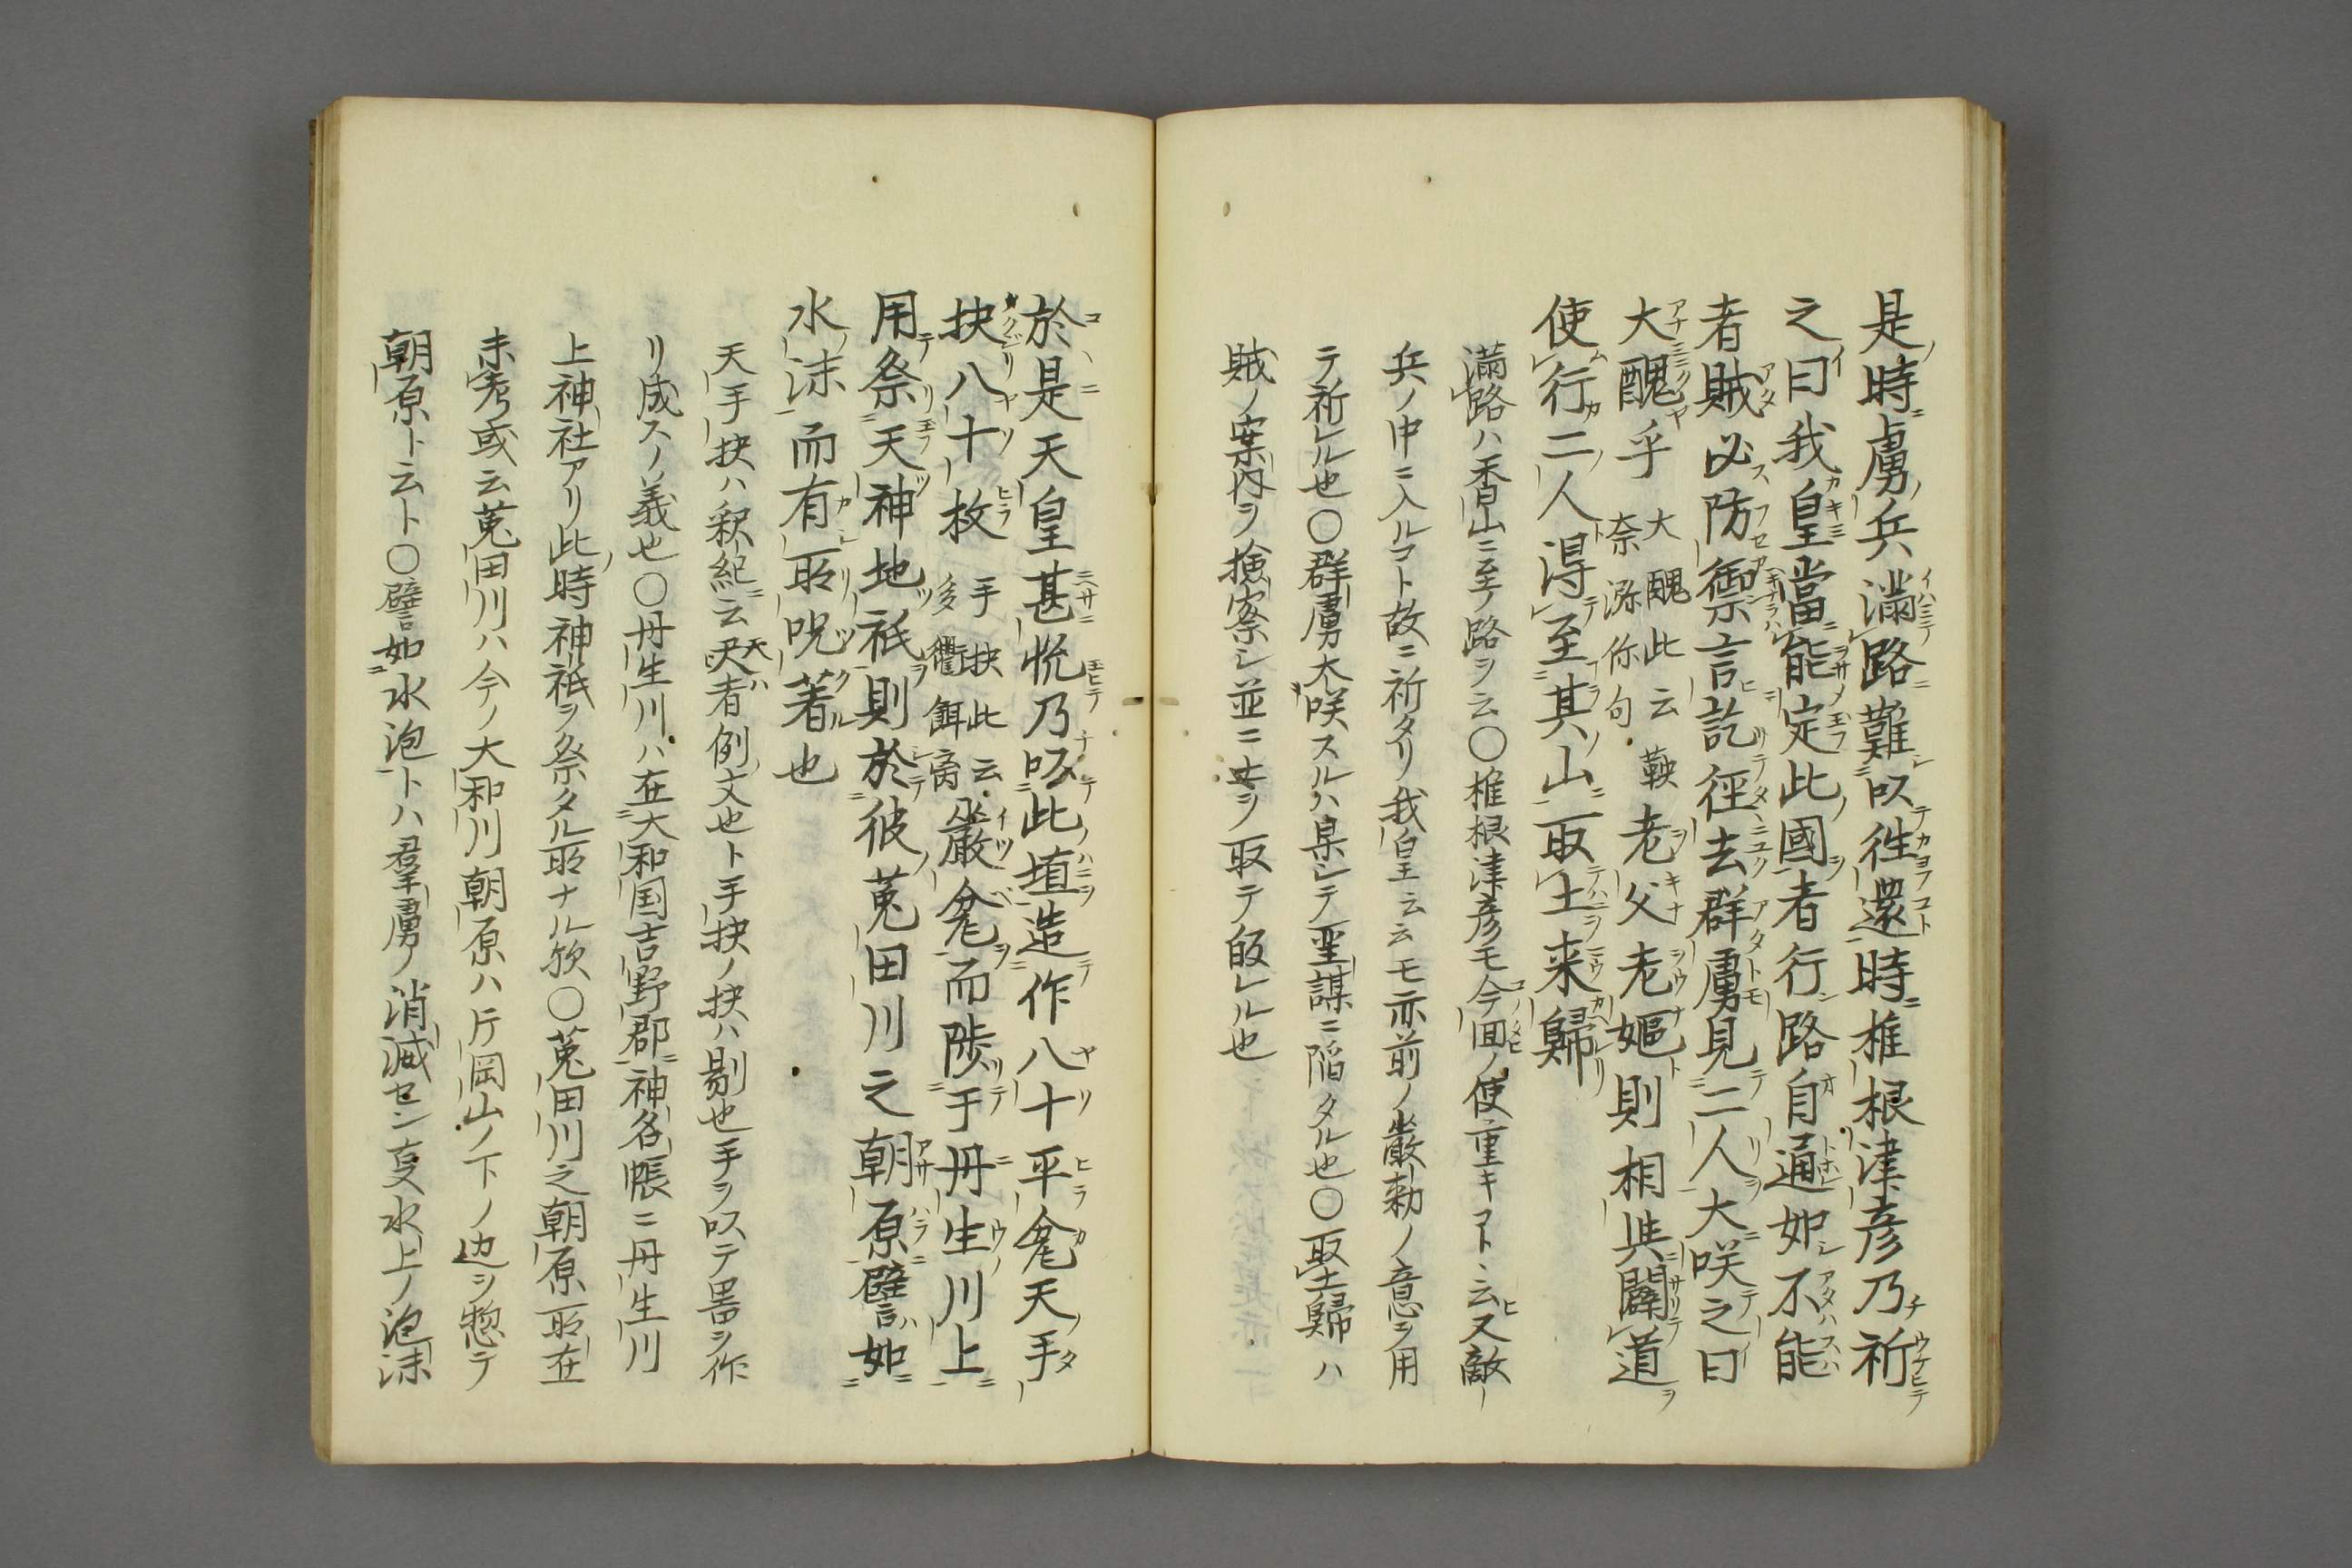 是時虜兵滿路難以往還時椎根津彦乃祈
之曰我皇當能定此國者行路自通如不能
者賊必防禦言訖徑去群虜見二人大咲之曰
大醜乎大醜此云鞅奈瀰你句老父老嫗則相與闢道
使行二人得至其山取土来歸
滿路ハ香山ニ至ノ路ヲ云〇椎根津彦モ今回ノ使重キヿト云又敵
兵ノ中ニ入ルコト故ニ祈タリ我皇云云モ亦前ノ嚴勅ノ意ヲ用
テ祈レル也〇群虜大咲スルハ果シテ聖謀ニ陷タル也〇取土歸ハ
賊ノ案内ヲ撿察シ並ニ土ヲ取テ皈レル也
於是天皇甚悦乃以此埴造作八十平瓮天手
抉八十枚手抉此云多衢餌離嚴瓮而陟于丹生川上
用祭天神地祇則於彼菟田川之朝原譬如
水沫而有所呪著也
天手抉ハ釈紀云天者例文也ト手抉ノ抉ハ剔也手ヲ以テ噐ヲ作
リ成スノ義也〇丹生川ハ在大和国吉野郡神名帳ニ丹生川
上神社アリ此時神祇ヲ祭タル所ナル欤〇菟田川之朝原所在
未考或云菟田川ハ今ノ大和川朝原ハ片岡山ノ下ノ边ヲ惣テ
朝原ト云ト〇譬如水泡トハ羣虜ノ消滅セン叓水上ノ泡沫